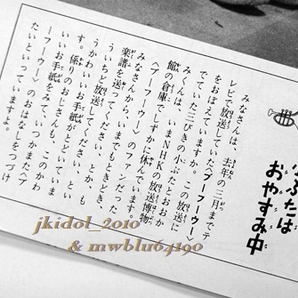 こぶたは
おやすみ中
みなさんは、去年の三月までテ
レビで放送していた「ブーフーウー」
をおぼえていますか。この放送に
でていた三びきの小ぶたとおおか
みくんは、いまNHKの放送博物
館の倉庫でしずかに休んでいます。
みなさんから、いまでもときどき、
「ブーフーウーのファンだった
楽譜を送ってください。とか、も
ういちど放送してください、とい
うかわいいお手紙がとどいていま
す。係りのおじさんも、このかわ
いいお手紙をみて、いつかまたブ
ーフーウーのおはなしをつづけ
たいといっていますよ。
jkidol_2010
& mwblu64190